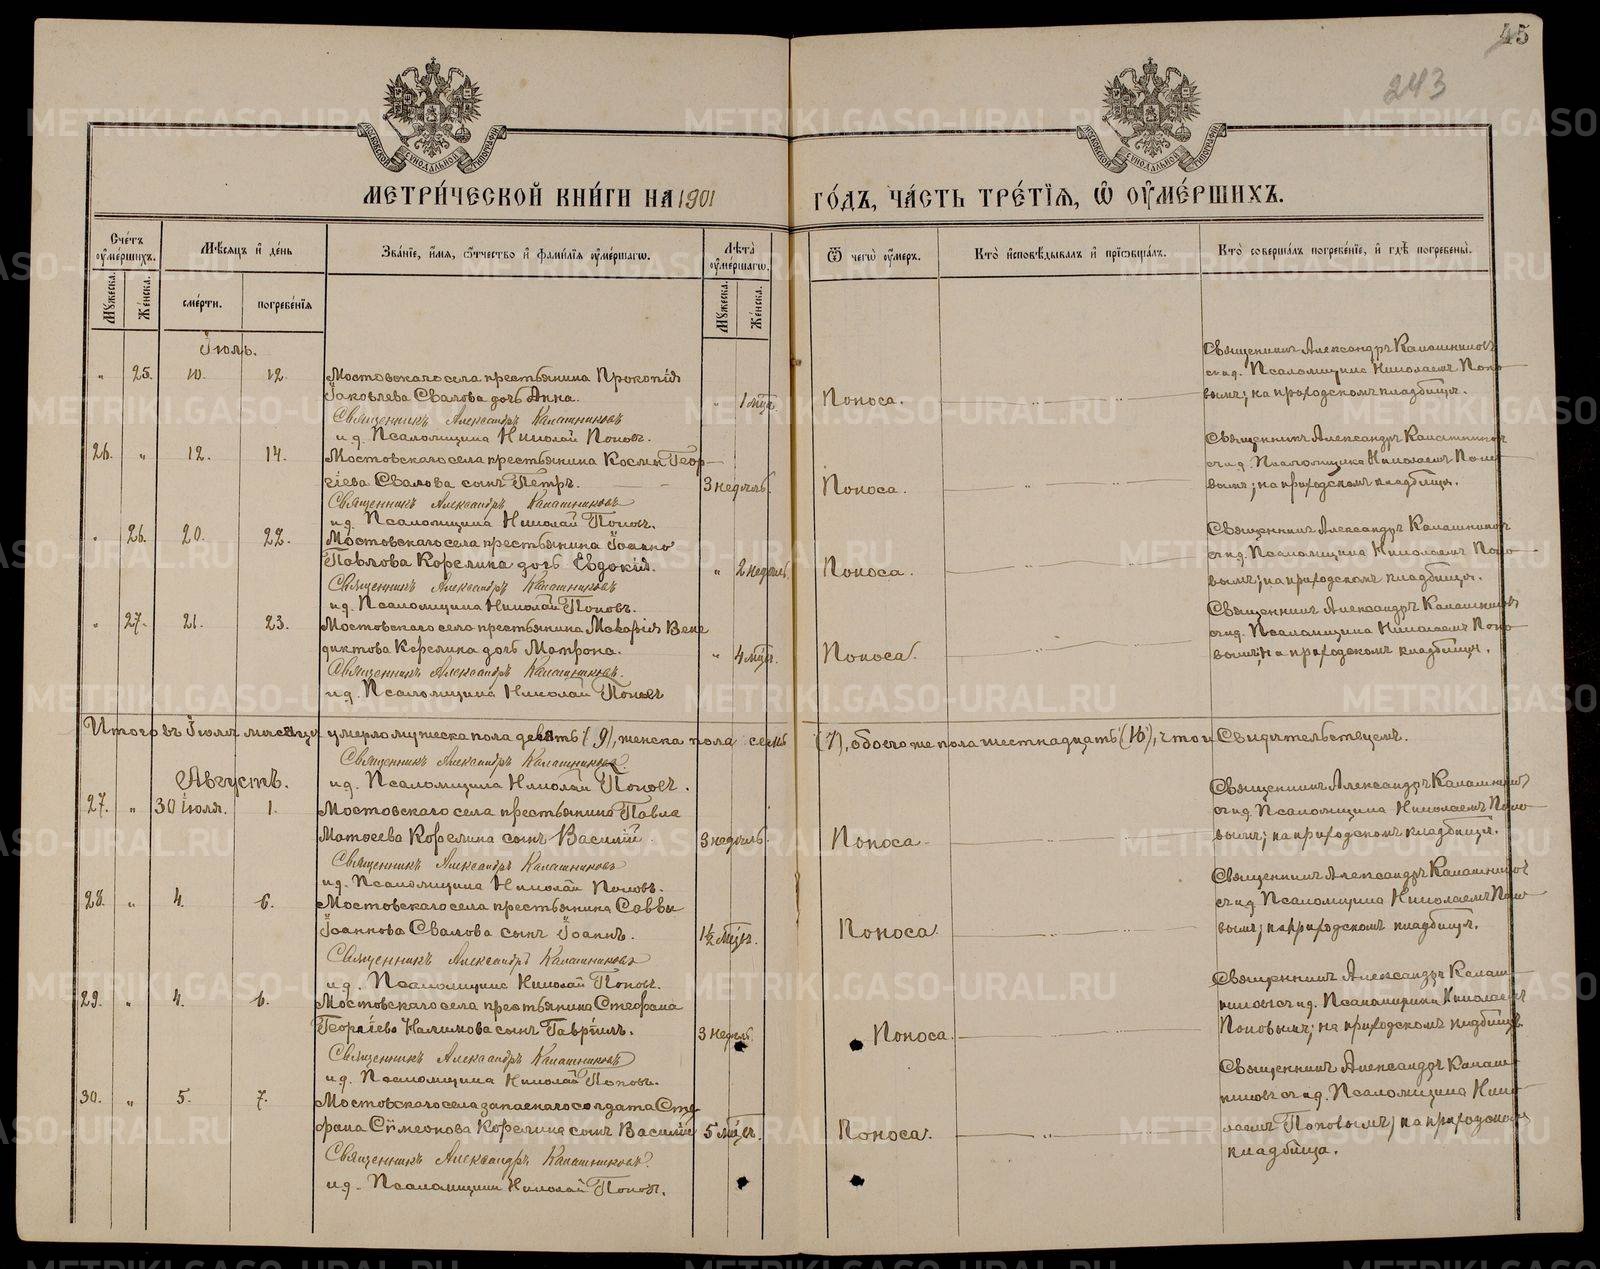 45
243
МОСКОВСКОЙ СУНОДАЛЬНОЙ ТИПОГРАФІИ
МОСКОВСКОЙ СУНОДАЛЬНОЙ ТИПОГРАФІИ
МЕТРИ́ЧЕСКОЙ КНИ́ГИ НА 1901
ГО́ДЪ, ЧА́СТЬ ТРЕ́ТЇѦ, Ѡ҆ ОУ҆МЕ́РШИХЪ.
Сче́тъ оу҆ме́ршихъ.
Мѣ́сѧцъ и҆ де́нь
Зва́нїе, и҆́мѧ, ѻ҆́тчество и҆ фамі́лїѧ оу҆ме́ршагѡ.
Лѣ́та оу҆ме́ршагѡ.
Ѿ чегѡ̀ оу҆́меръ.
Кто̀ и҆сповѣ́дывалъ и҆ прїѡбща́лъ.
Кто̀ соверша́лъ погребе́нїе, и҆ гдѣ̀ погребены̀.
Мꙋжеска. Же́нска.
сме́рти. погребе́нїѧ
Мꙋжеска. Же́нска.
Іюль.
„ 25. 10. 12. Мостовскаго села крестьянина Прокопія
Іаковлева Свалова дочь Анна. „ 1 мѣц. Поноса.
Священникъ Александръ Калашниковъ
и.д. Псаломщика Николай Поповъ.
Священникъ Александръ Калашниковъ
съ и.д. Псаломщика Николаемъ Попо-
вымъ; на приходскомъ кладбищѣ.
26. „ 12. 14. Мостовскаго села крестьянина Космы Геор-
гіева Свалова сынъ Петръ. 3 недѣль. Поноса.
Священникъ Александръ Калашниковъ
и.д. Псаломщика Николай Поповъ.
Священникъ Александръ Калашниковъ
съ и.д. Псаломщика Николаемъ Попо-
вымъ; на приходскомъ кладбищѣ.
„ 26. 20. 22. Мостовскаго села крестьянина Іоанна
Павлова Корелина дочь Евдокія. „ 2 недѣль. Поноса.
Священникъ Александръ Калашниковъ
и.д. Псаломщика Николай Поповъ.
Священникъ Александръ Калашниковъ
съ и.д. Псаломщика Николаемъ Попо-
вымъ; на приходскомъ кладбищѣ.
„ 27. 21. 23. Мостовскаго села крестьянина Макарія Вене-
диктова Корелина дочь Матрона. „ 4 мѣц. Поноса.
Священникъ Александръ Калашниковъ.
и.д. Псаломщика Николай Поповъ
Священникъ Александръ Калашниковъ
съ и.д. Псаломщика Николаемъ Попо-
вымъ; на приходскомъ кладбищѣ.
Итого въ Іюлѣ мѣсяцѣ умерло мужеска пола девять (9), женска пола семь (7), обоего же пола шестнадцать (16), что и Свидѣтельствуемъ.
Священникъ Александръ Калашниковъ.
и.д. Псаломщика Николай Поповъ.
Августъ.
27. „ 30 Іюля. 1. Мостовскаго села крестьянина Павла
Матѳеева Корелина сынъ Василій 3 недѣль. Поноса.
Священникъ Александръ Калашниковъ
и.д. Псаломщика Николай Поповъ.
Священникъ Александръ Калашниковъ
съ и.д. Псаломщика Николаемъ Попо-
вымъ; на приходскомъ кладбищѣ.
28. „ 4. 6. Мостовскаго села крестьянина Саввы
Іоаннова Свалова сынъ Іоаннъ. 1½ мѣц. Поноса.
Священникъ Александръ Калашниковъ
и.д. Псаломщика Николай Поповъ.
Священникъ Александръ Калашниковъ
съ и.д. Псаломщика Николаемъ Попо-
вымъ; на приходскомъ кладбищѣ.
29. „ 4. 6. Мостовскаго села крестьянина Стефана
Георгіева Налимова сынъ Гавріилъ. 3 недѣль. Поноса.
Священникъ Александръ Калашниковъ
и.д. Псаломщика Николай Поповъ.
Священникъ Александръ Калаш-
никовъ съ и.д. Псаломщика Николаемъ
Поповымъ; на приходскомъ кладбищѣ.
30. „ 5. 7. Мостовскаго села запаснаго солдата Сте-
фана Сѵмеонова Корелина сынъ Василій 5 мѣц. Поноса.
Священникъ Александръ Калашниковъ.
и.д. Псаломщика Николай Поповъ.
Священникъ Александръ Калаш-
никовъ съ и.д. Псаломщика Нико-
лаемъ Поповымъ; на приходскомъ
кладбищѣ.
METRIKI.GASO-URAL.RU